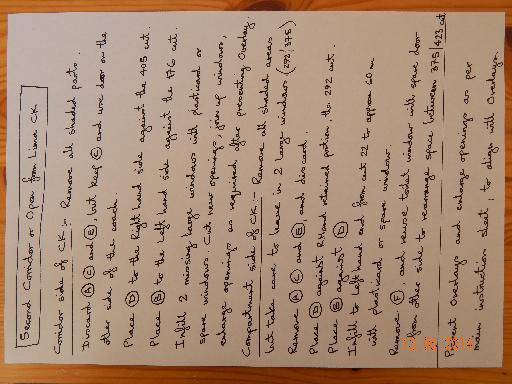 Second Corridor or Open from Lima CK
Corridor side of CK :- Remove all shaded parts.
Discard A C and E, but keep C and use door on the
other side of the coach.
Place D to the Right hand side against the 405 cut.
Place B to the Left hand side against the 176 cut.
Infill 2 missing large windows with plasticard or
spare windows. Cut new openings, join up windows,
enlarge openings as required, after presenting Overlay.
Compartment side of CK :- Remove all shaded areas
but take care to leave in 2 large windows (292/375)
Remove A C and E and discard.
Place D against RHand retained portion the 292 cut.
Place B against D
Infill to Left hand end from cut 22 to approx 60 m
with plasticard or spare window.
Remove F, and reuse toilet window with spare door
from other side to rearrange space between 375/423 cut
Present Overlays and enlarge openings as per
main instruction sheet, to align with Overlays.
2014